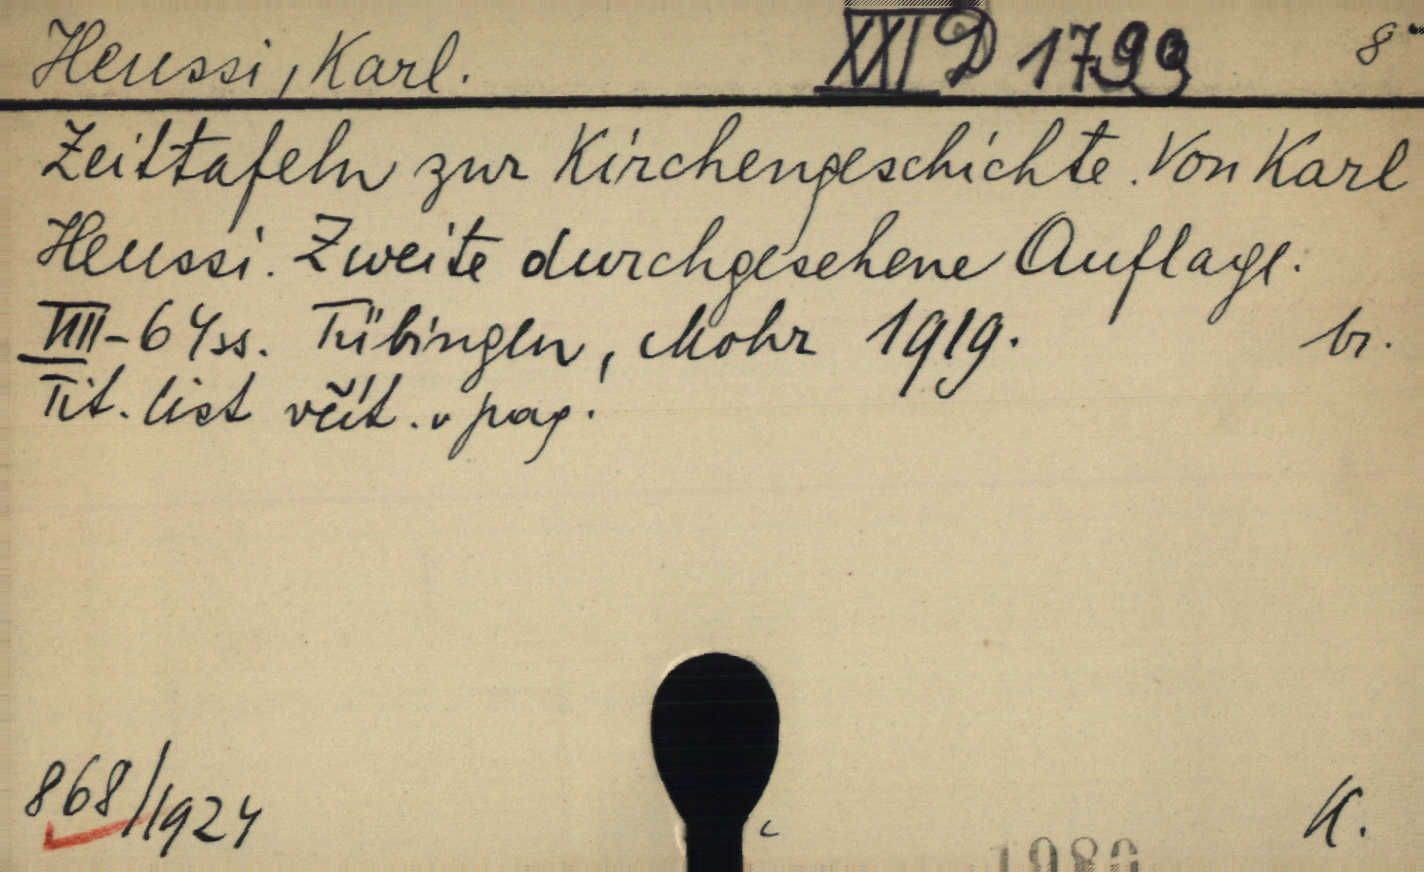 Heussi, Karl. XXI D 1799 8°
Zeittafeln zur Kirchengeschichte. Von Karl
Heussi. Zweite durchgesehene Auflage.
VIII-64ss. Tübingen, Mohr 1919. br.
Tit. list včít. v pag.
868/1924
K.
1980